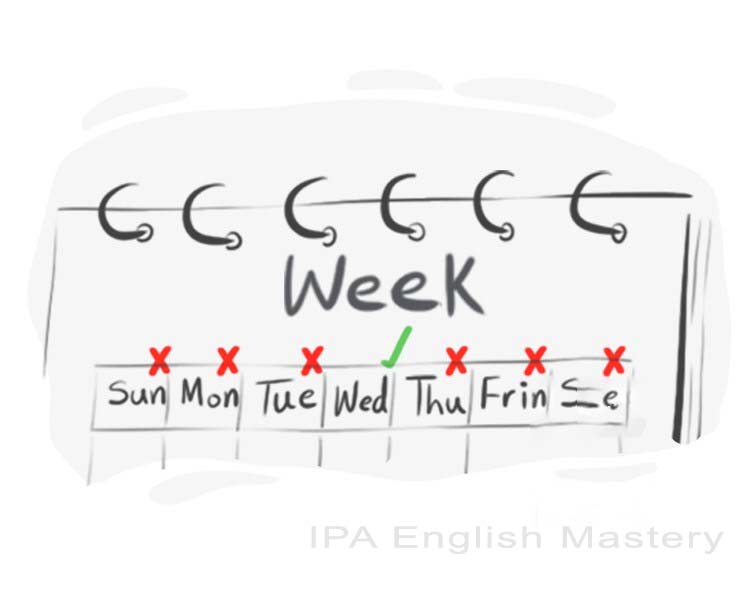 Week
Sun Mon Tue Wed Thu Frin
IPA English Mastery